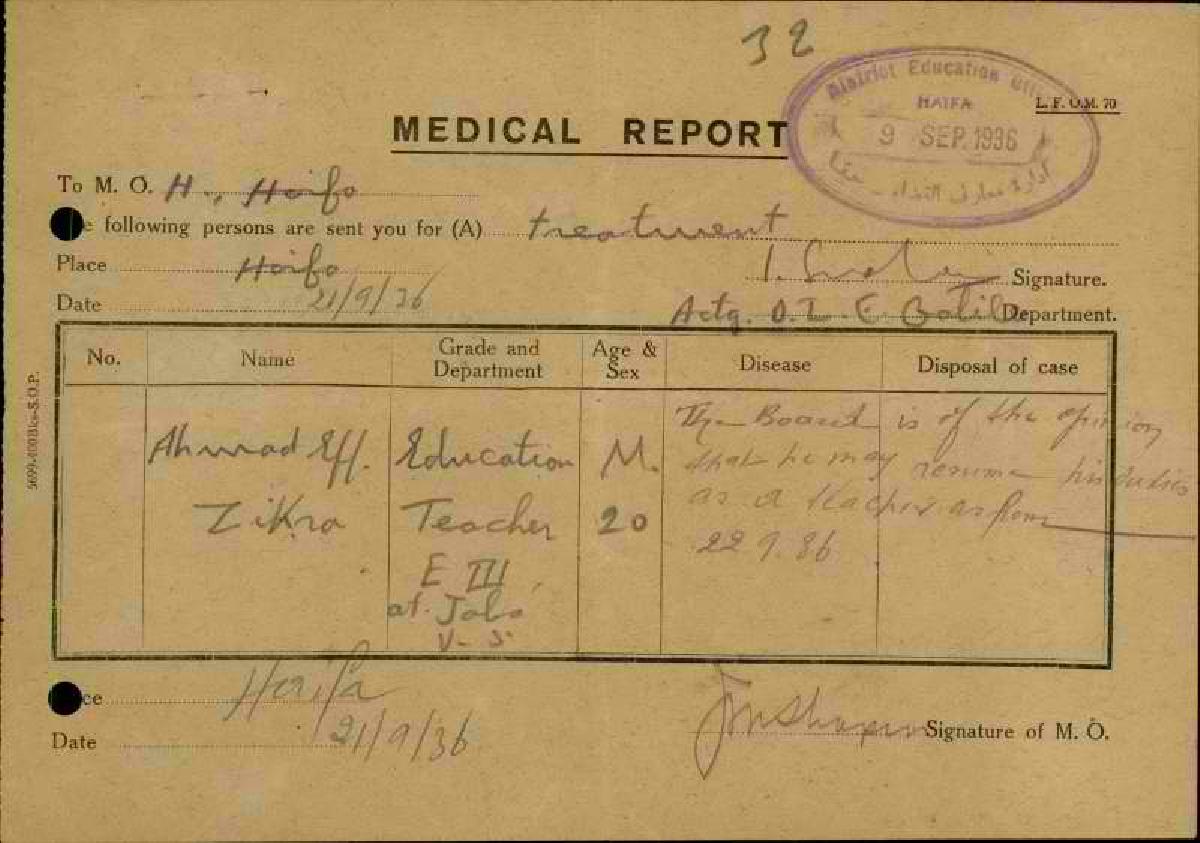 32
District Education
HAIFA
9 SEP. 1936
L. F. O.M. 70
MEDICAL REPORT
To M. O. H., Haifa
e following persons are sent you for (A) treatment
Place Haifa
Signature.
Date 21/9/36
Actg. Department.
No. Name Grade and Department Age & Sex Disease Disposal of case
The Board is of the opinion
Ahmad Eff. Education M. that he may resume his duties
Zikra Teacher 20 as a teacher as from
22.9.36
E III
at Jaba
V. S.
ce Haifa
Signature of M. O.
Date 21/9/36